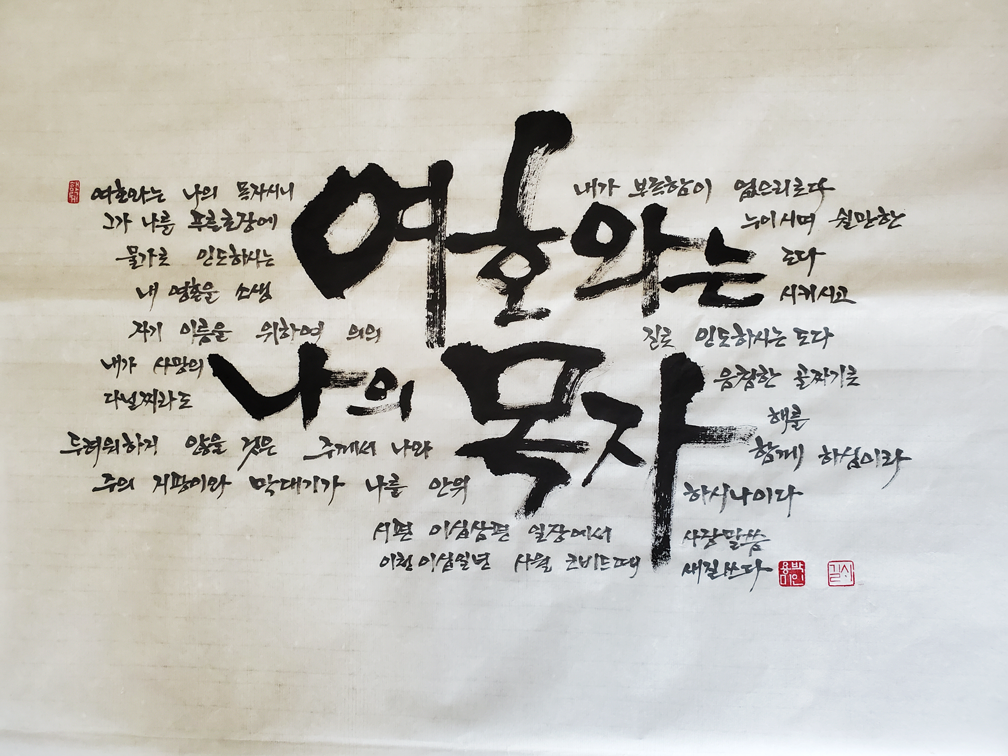 여호와는
나의 목자
여호와는 나의 목자시니 내가 부족함이 없으리로다
그가 나를 푸른초장에 누이시며 쉴만한
물가로 인도하시는 도다
내 영혼을 소생 시키시고
자기 이름을 위하여 의의 길로 인도하시는도다
내가 사망의 음침한 골짜기로
다닐찌라도 해를
두려워하지 않을 것은 주께서 나와 함께 하심이라
주의 지팡이와 막대기가 나를 안위 하시나이다
시편 이십삼편 일장에서 사랑말씀
이천이십일년 사월 코비드때 새길쓰다